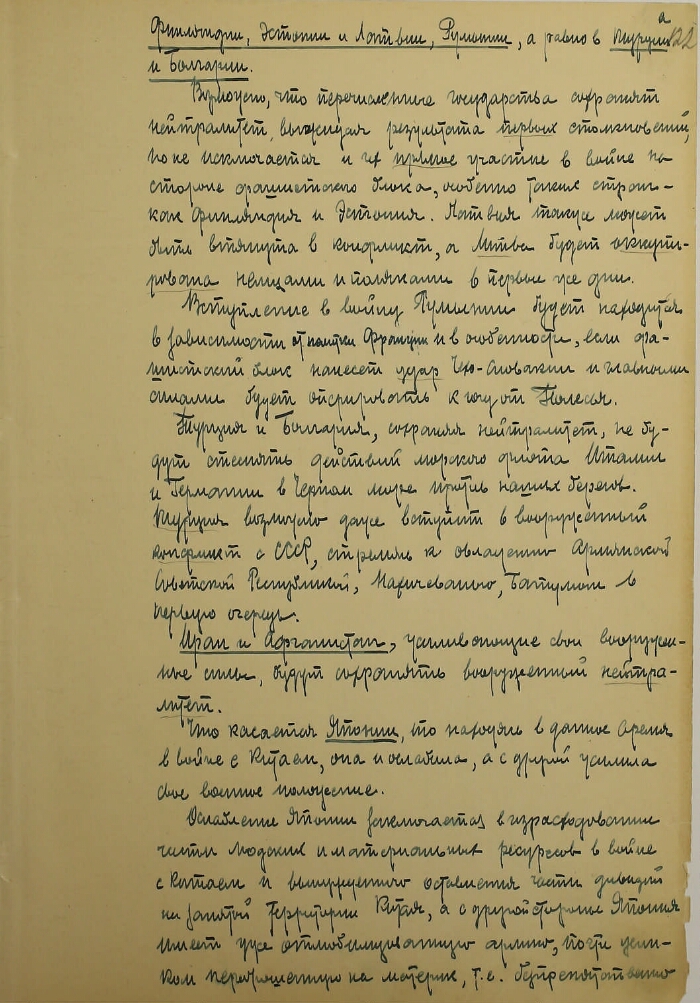 Финляндии, Эстонии и Латвии, Румынии, а равно в Турции 122
и Болгарии.
Возможно, что перечисленные государства сохранят
нейтралитет, выжидая результата первых столкновений,
но не исключается и их прямое участие в войне на
стороне фашистского блока, особенно таких стран –
как Финляндия и Эстония. Латвия также может
быть втянута в конфликт, а Литва будет оккупи-
рована немцами и поляками в первые же дни.
Вступление в войну Румынии будет находится
в зависимости от политики Франции и в особенности, если фа-
шистский блок нанесет удар Чехо-Словакии и главными
силами будет оперировать к югу от Полесья.
Турция и Болгария, сохраняя нейтралитет, не бу-
дут стеснять действий морского флота Италии
и Германии в Черном море против наших берегов.
Турция возможно даже вступит в вооруженный
конфликт с СССР, стремясь к овладению Армянской
Советской Республикой, Нахичеванью, Батумом в
первую очередь.
Иран и Афганистан, усиливающие свои вооружен-
ные силы, будут сохранять вооруженный нейтра-
литет.
Что касается Японии, то находясь в данное время
в войне с Китаем, она и ослабила, а с другой усилила
свое военное положение.
Ослабление Японии заключается в израсходовании
части людских и материальных ресурсов в войне
с Китаем и вынужденного оставления части дивизий
на занятой территории Китая, а с другой стороны Япония
имеет уже отмобилизованную армию, почти цели-
ком переброшенную на материк, т.е. беспрепятственно